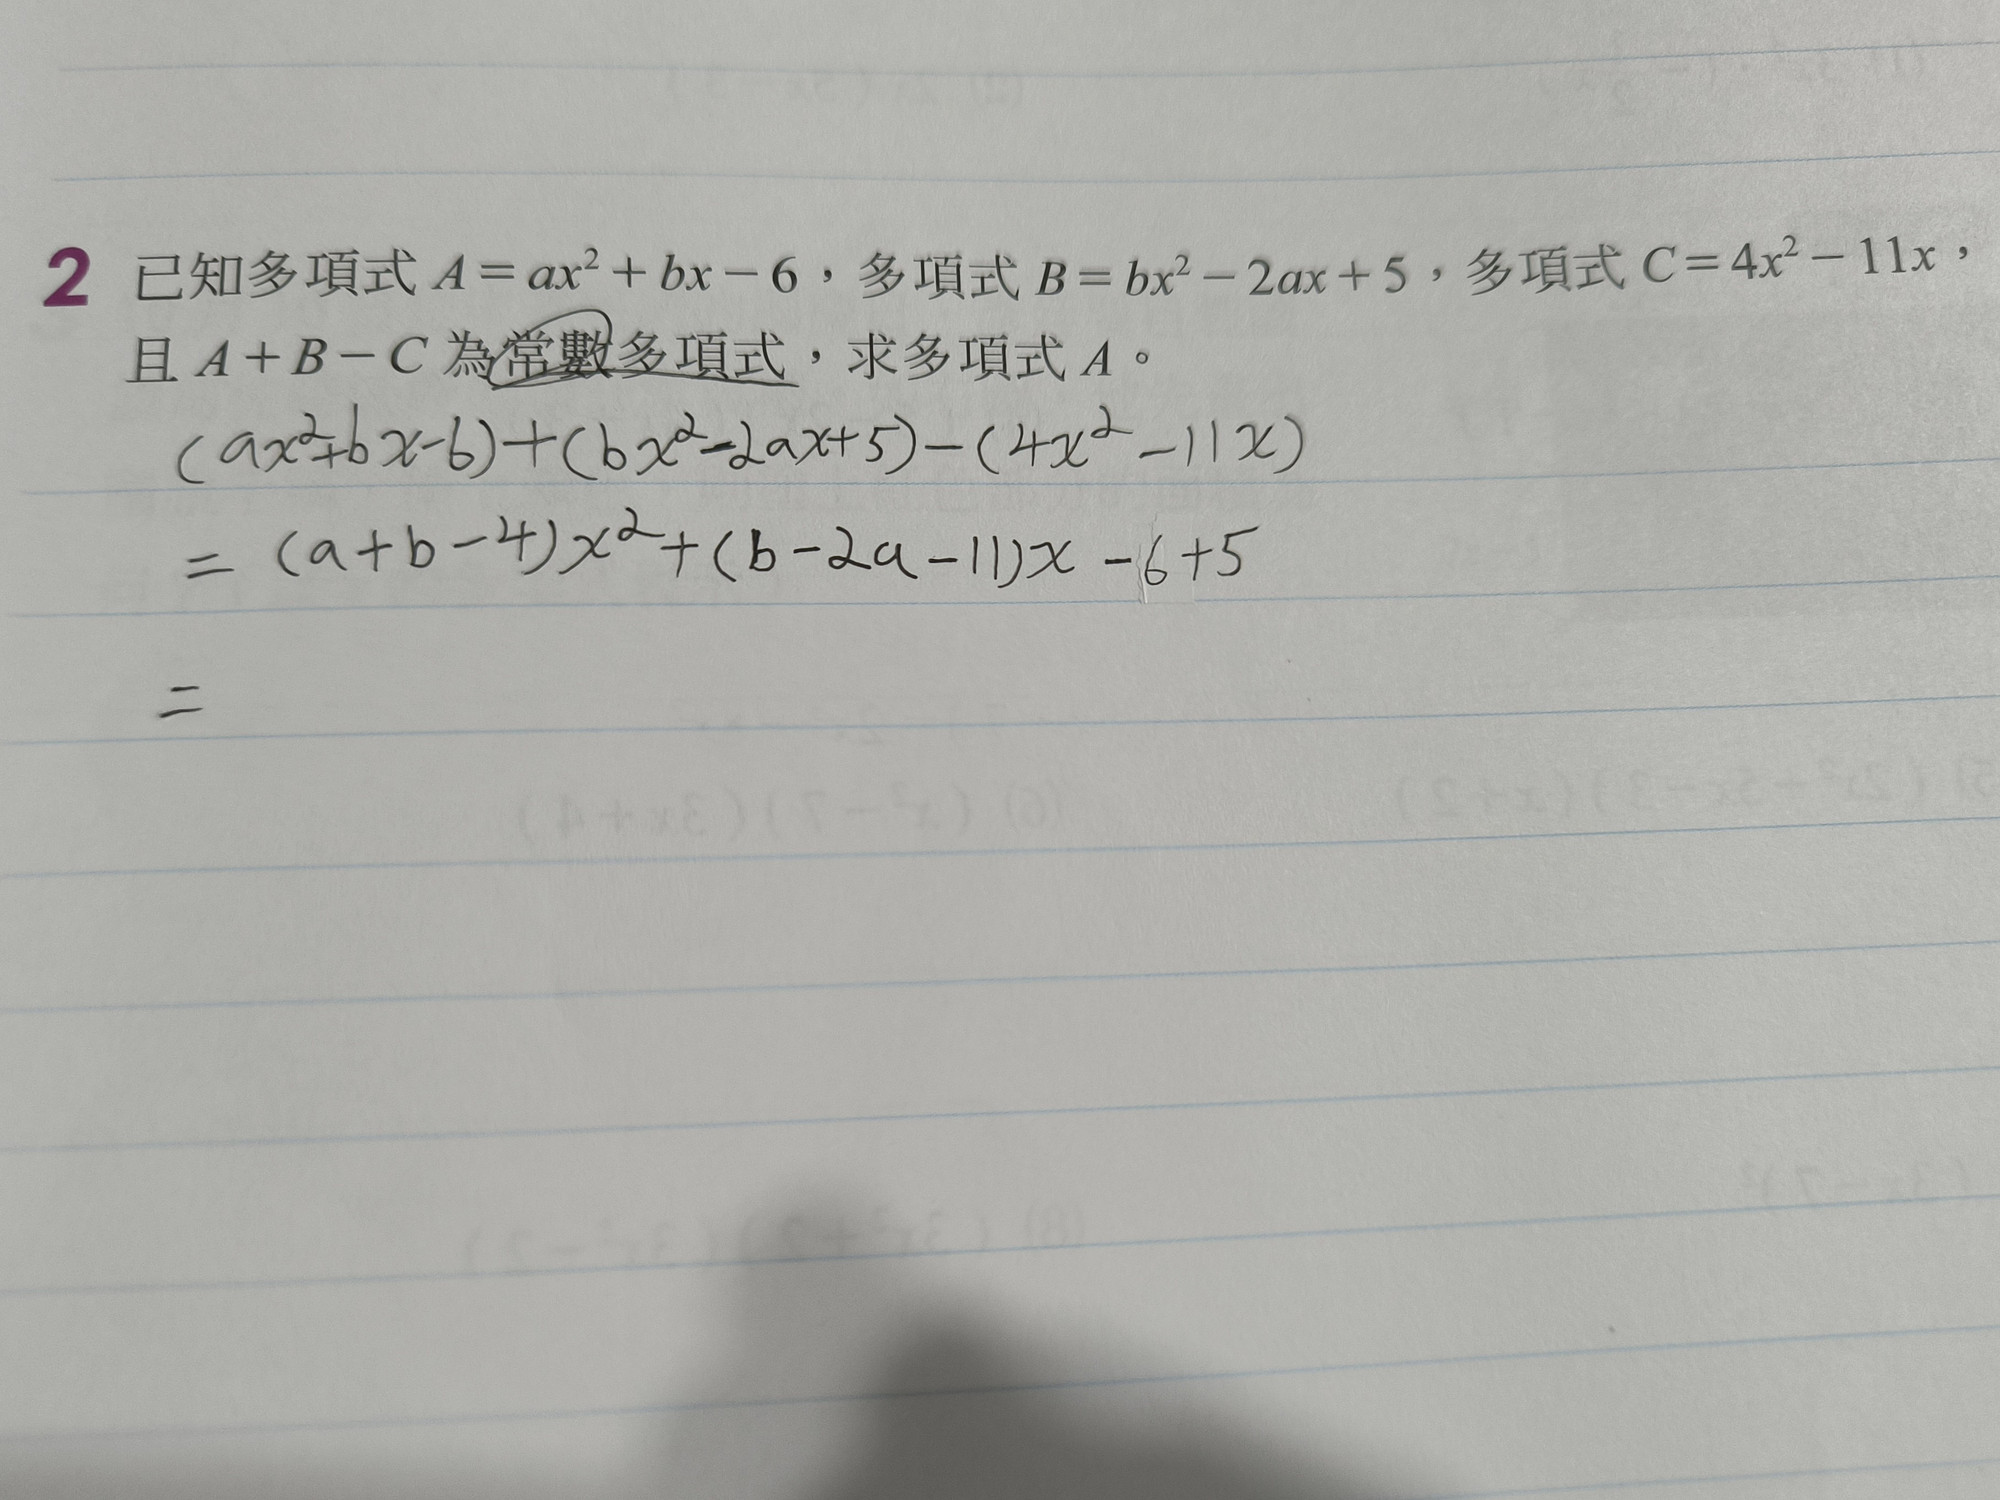 2 已知多項式 A=ax²+bx-6，多項式 B=bx²-2ax+5，多項式 C=4x²-11x，
且 A+B-C 為常數多項式，求多項式 A。
(ax²+bx-6)+(bx²-2ax+5)-(4x²-11x)
= (a+b-4)x²+(b-2a-11)x -6+5
=